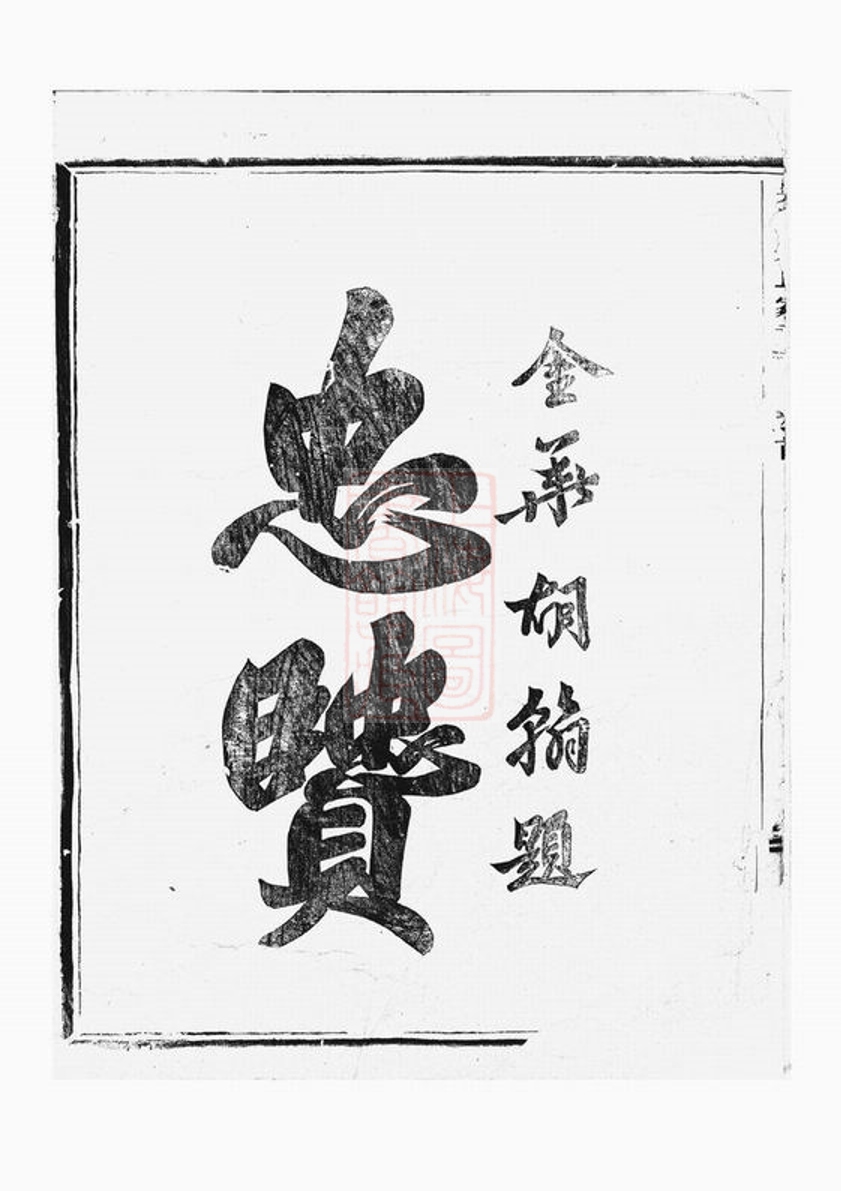 金華胡翰題
忠贒